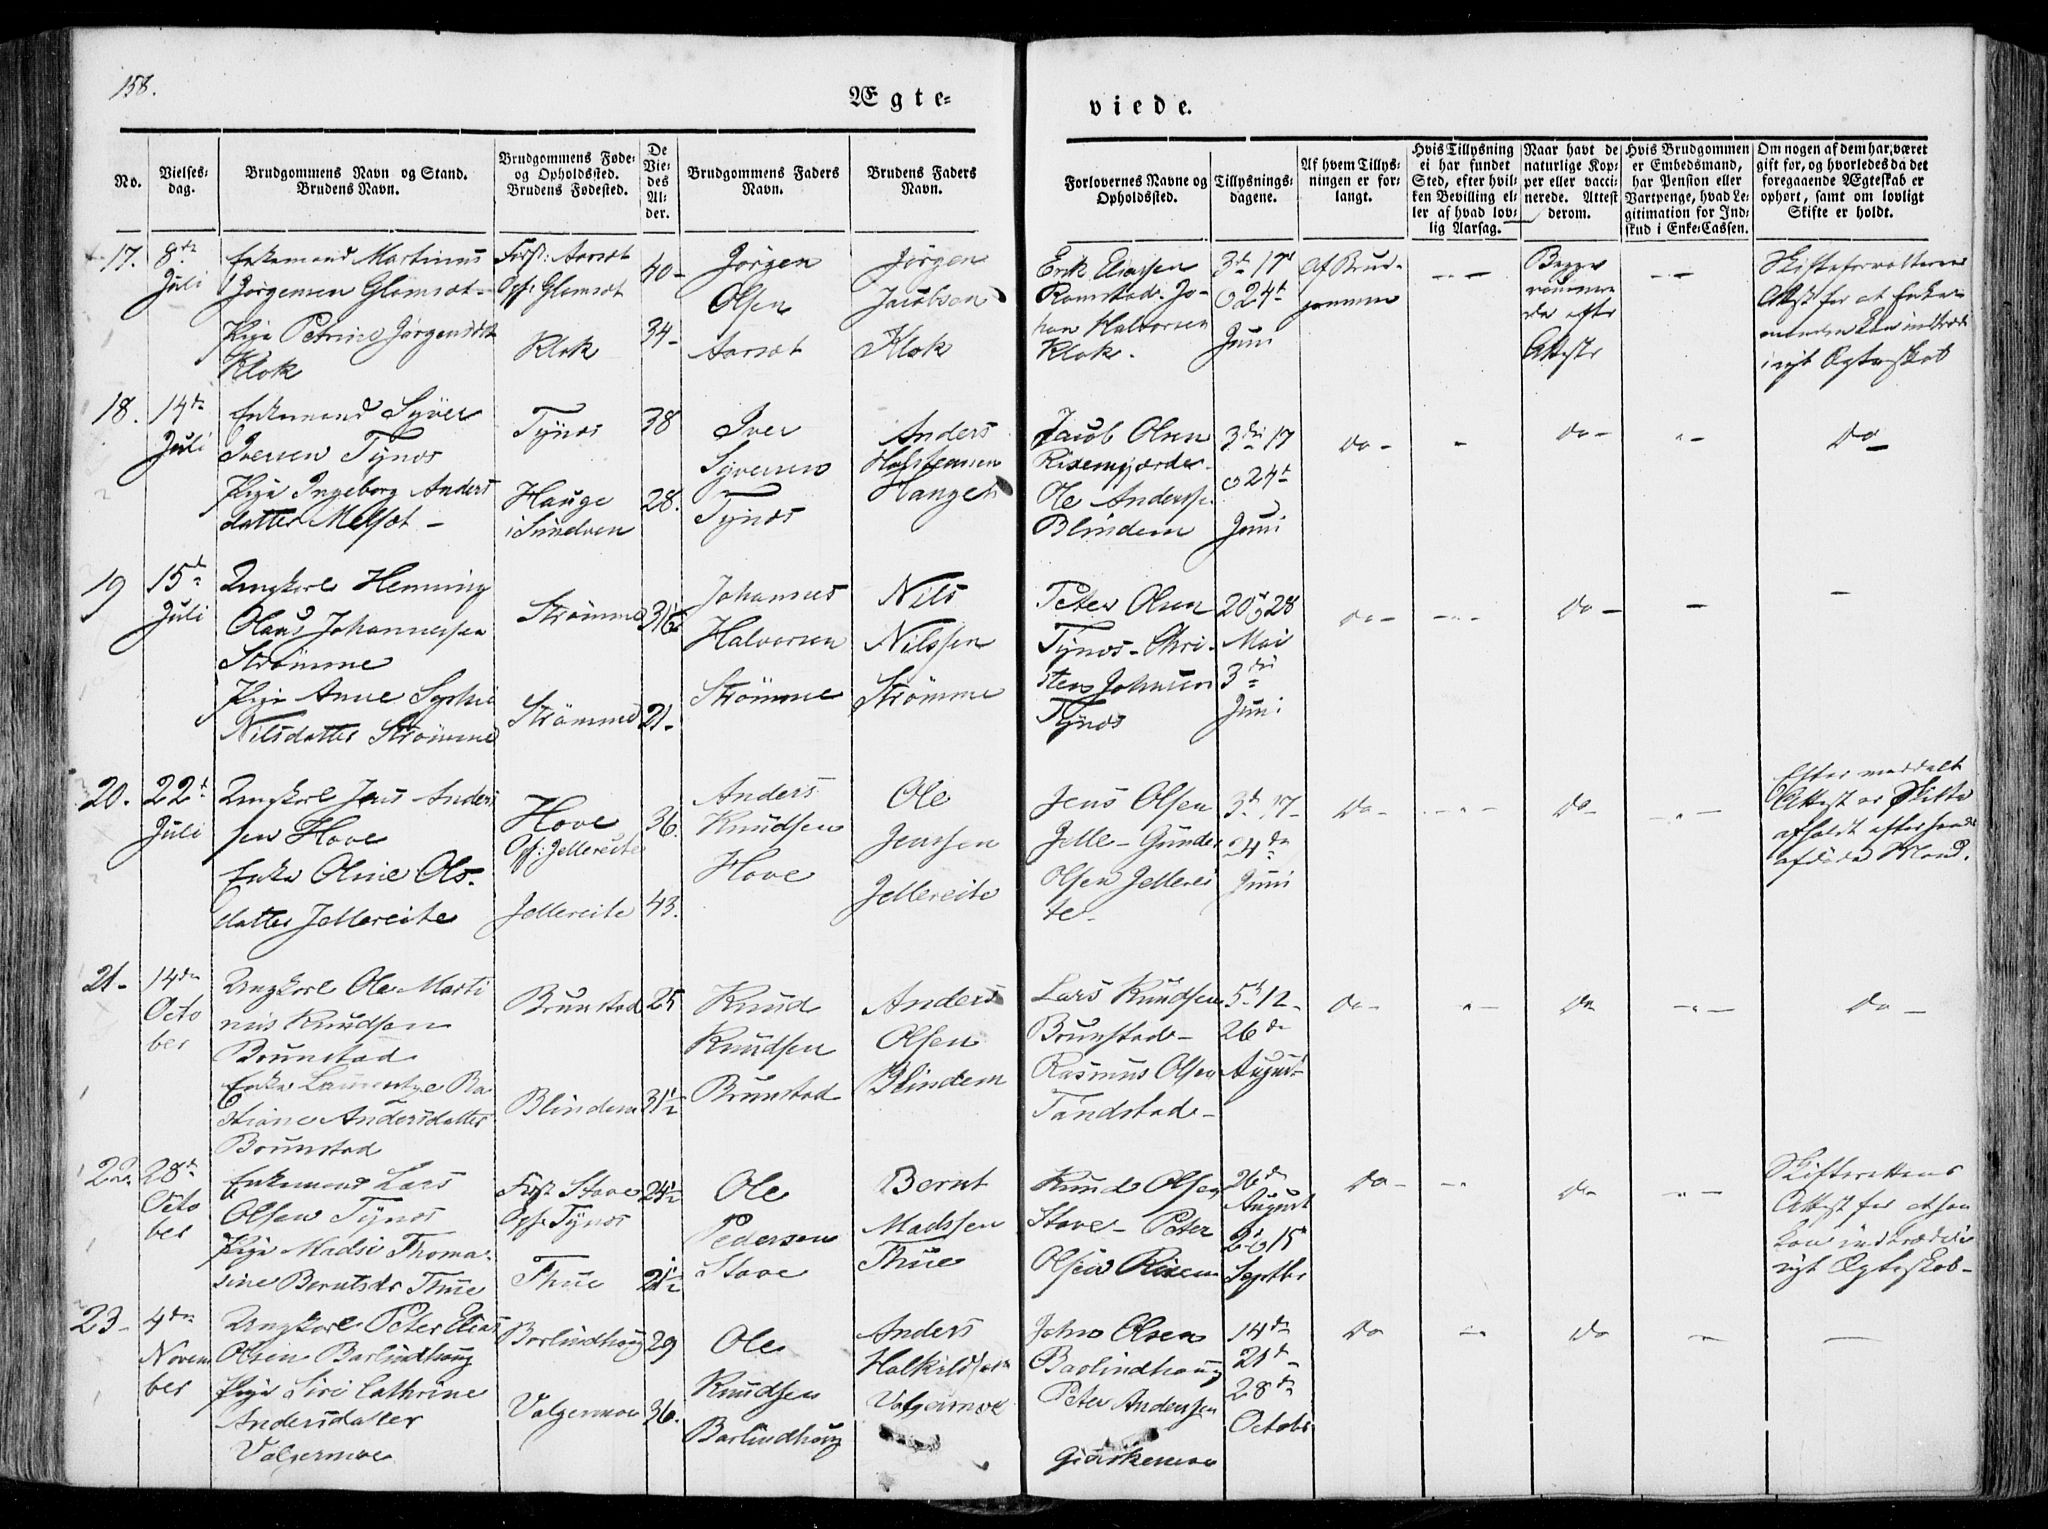 158.
Ægte-
viede.
No.
Vielses-
dag.
Brudgommens Navn og Stand.
Brudens Navn.
Brudgommens Føde-
og Opholdssted.
Brudens Fødested.
De
Vie-
des
Al-
der.
Brudgommens Faders
Navn.
Brudens Faders
Navn.
Forlovernes Navne og
Opholdssted.
Tillysnings-
dagene.
Af hvem Tillys-
ningen er for-
langt.
Hvis Tillysning
ei har fundet
Sted, efter hvil-
ken Bevilling el-
ler af hvad lov-
lig Aarsag.
Naar havt de
naturlige Kop-
per eller vacci-
nerede. Attest
derom.
Hvis Brudgommen
er Embedsmand,
har Pension eller
Vartpenge, hvad Le-
gitimation for Ind-
skud i Enke-Cassen.
Om nogen af dem har været
gift før, og hvorledes da det
foregaaende Ægteskab er
ophört, samt om lovligt
Skifte er holdt.
17.
8de
Juli
Enkemand Martinus
Jørgensen Glomsæt
Pige Petrine Jørgensdtr
Klok
Fødst: Aarsæt
Opf: Glomsæt
Klok
40-
34-
Jørgen
Olsen
Aarsæt
Jørgen
Jacobsen
Klok
Erik Eliassen
Ramstad. Jo-
han Halvorsen
Klok.
3de 17de
o 24de
Juni
Af Brud-
gommen
Begge
vaccinere
de efter
Attester
Skifteforvalterens
Attest for at Enke-
manden kan indtræde
i nyt Ægteskab
18.
14de
Juli
Enkemand Syver
Iversen Tynes
Pige Ingeborg Anders
datter Melsæt -
Tynes
Hauge
i Sundven
38
28.
Iver
Syversen
Tynes
Anders
Halstensen
Hauge
Jacob Olsen
Risemgjerde-
Ole Anderss.
Blindem
3die 17
o 24de
Juni
do-
do-
do-
19
15de
Juli
Ungkarl Henning
Olaus Johannessen
Strømme
Pige Anne Sophie
Nilsdatter Strømme
Strømme
Strømme
31½
21-
Johannes
Halvorsen
Strømme
Nils
Nilssen
Strømme
Peter Olsen
Tynes - Chri-
sten Johnsen
Tynes
20de o 28
Mai
3die
Juni
do-
do-
20.
22de
Juli
Ungkarl Jens Anders
sen Hove
Enke Oline Ols-
datter Jellereite
Hove
Opf: Jellereite
Jellereite
36.
43.
Anders
Knudsen
Hove
Ole
Jenssen
Jellereite
Jens Olsen
Jelle - Gunder
Olsen Jellerei
te-
3de 17-
24de
Juni
do-
do-
Efter meddelt
Attest er Skifte
afholdt efter hendes
afdøde Mand.
21-
14de
Octo
ber
Ungkarl Ole Marti
nus Knudsen
Brunstad
Enke Laurentze Ba
stiane Andersdatter
Brunstad
Brunstad
Blindem
25
31½
Knud
Knudsen
Brunstad
Anders
Olsen
Blindem
Lars Knudsen
Brunstad-
Rasmus Olsen
Tandstad-
5te 12-
26de
August
do-
do
do-
22.
28de
Octo
ber
Enkemand Lars
Olsen Tynes
Pige Madsi Thoma-
sine Berntsdr Thue
Fødst Stave
Opf: Tynes
Thue
24½
21½
Ole
Pedersen
Stave
Bernt
Madssen
Thue
Knud Olsen
Stave - Peter
Olsen Risem
26de
August
2de o 15de
Septbr
do-
do-
Skifterettens
Attest for at han
kan indtræde i
nyt Ægteskab-
23-
4de
Novem
ber
Ungkarl Peter Elias
Olsen Barlindhaug
Pige Siri Cathrine
Andersdatter
Valgermoe
Barlindhaug
Valgermoe
29
36.
Ole
Knudsen
Barlindhaug
Anders
Halkildsen
Valgermoe
John Olsen
Barlindhaug
Peter Anderssen
Giærkemoe
14de
21de
28de
Octobr
do
do